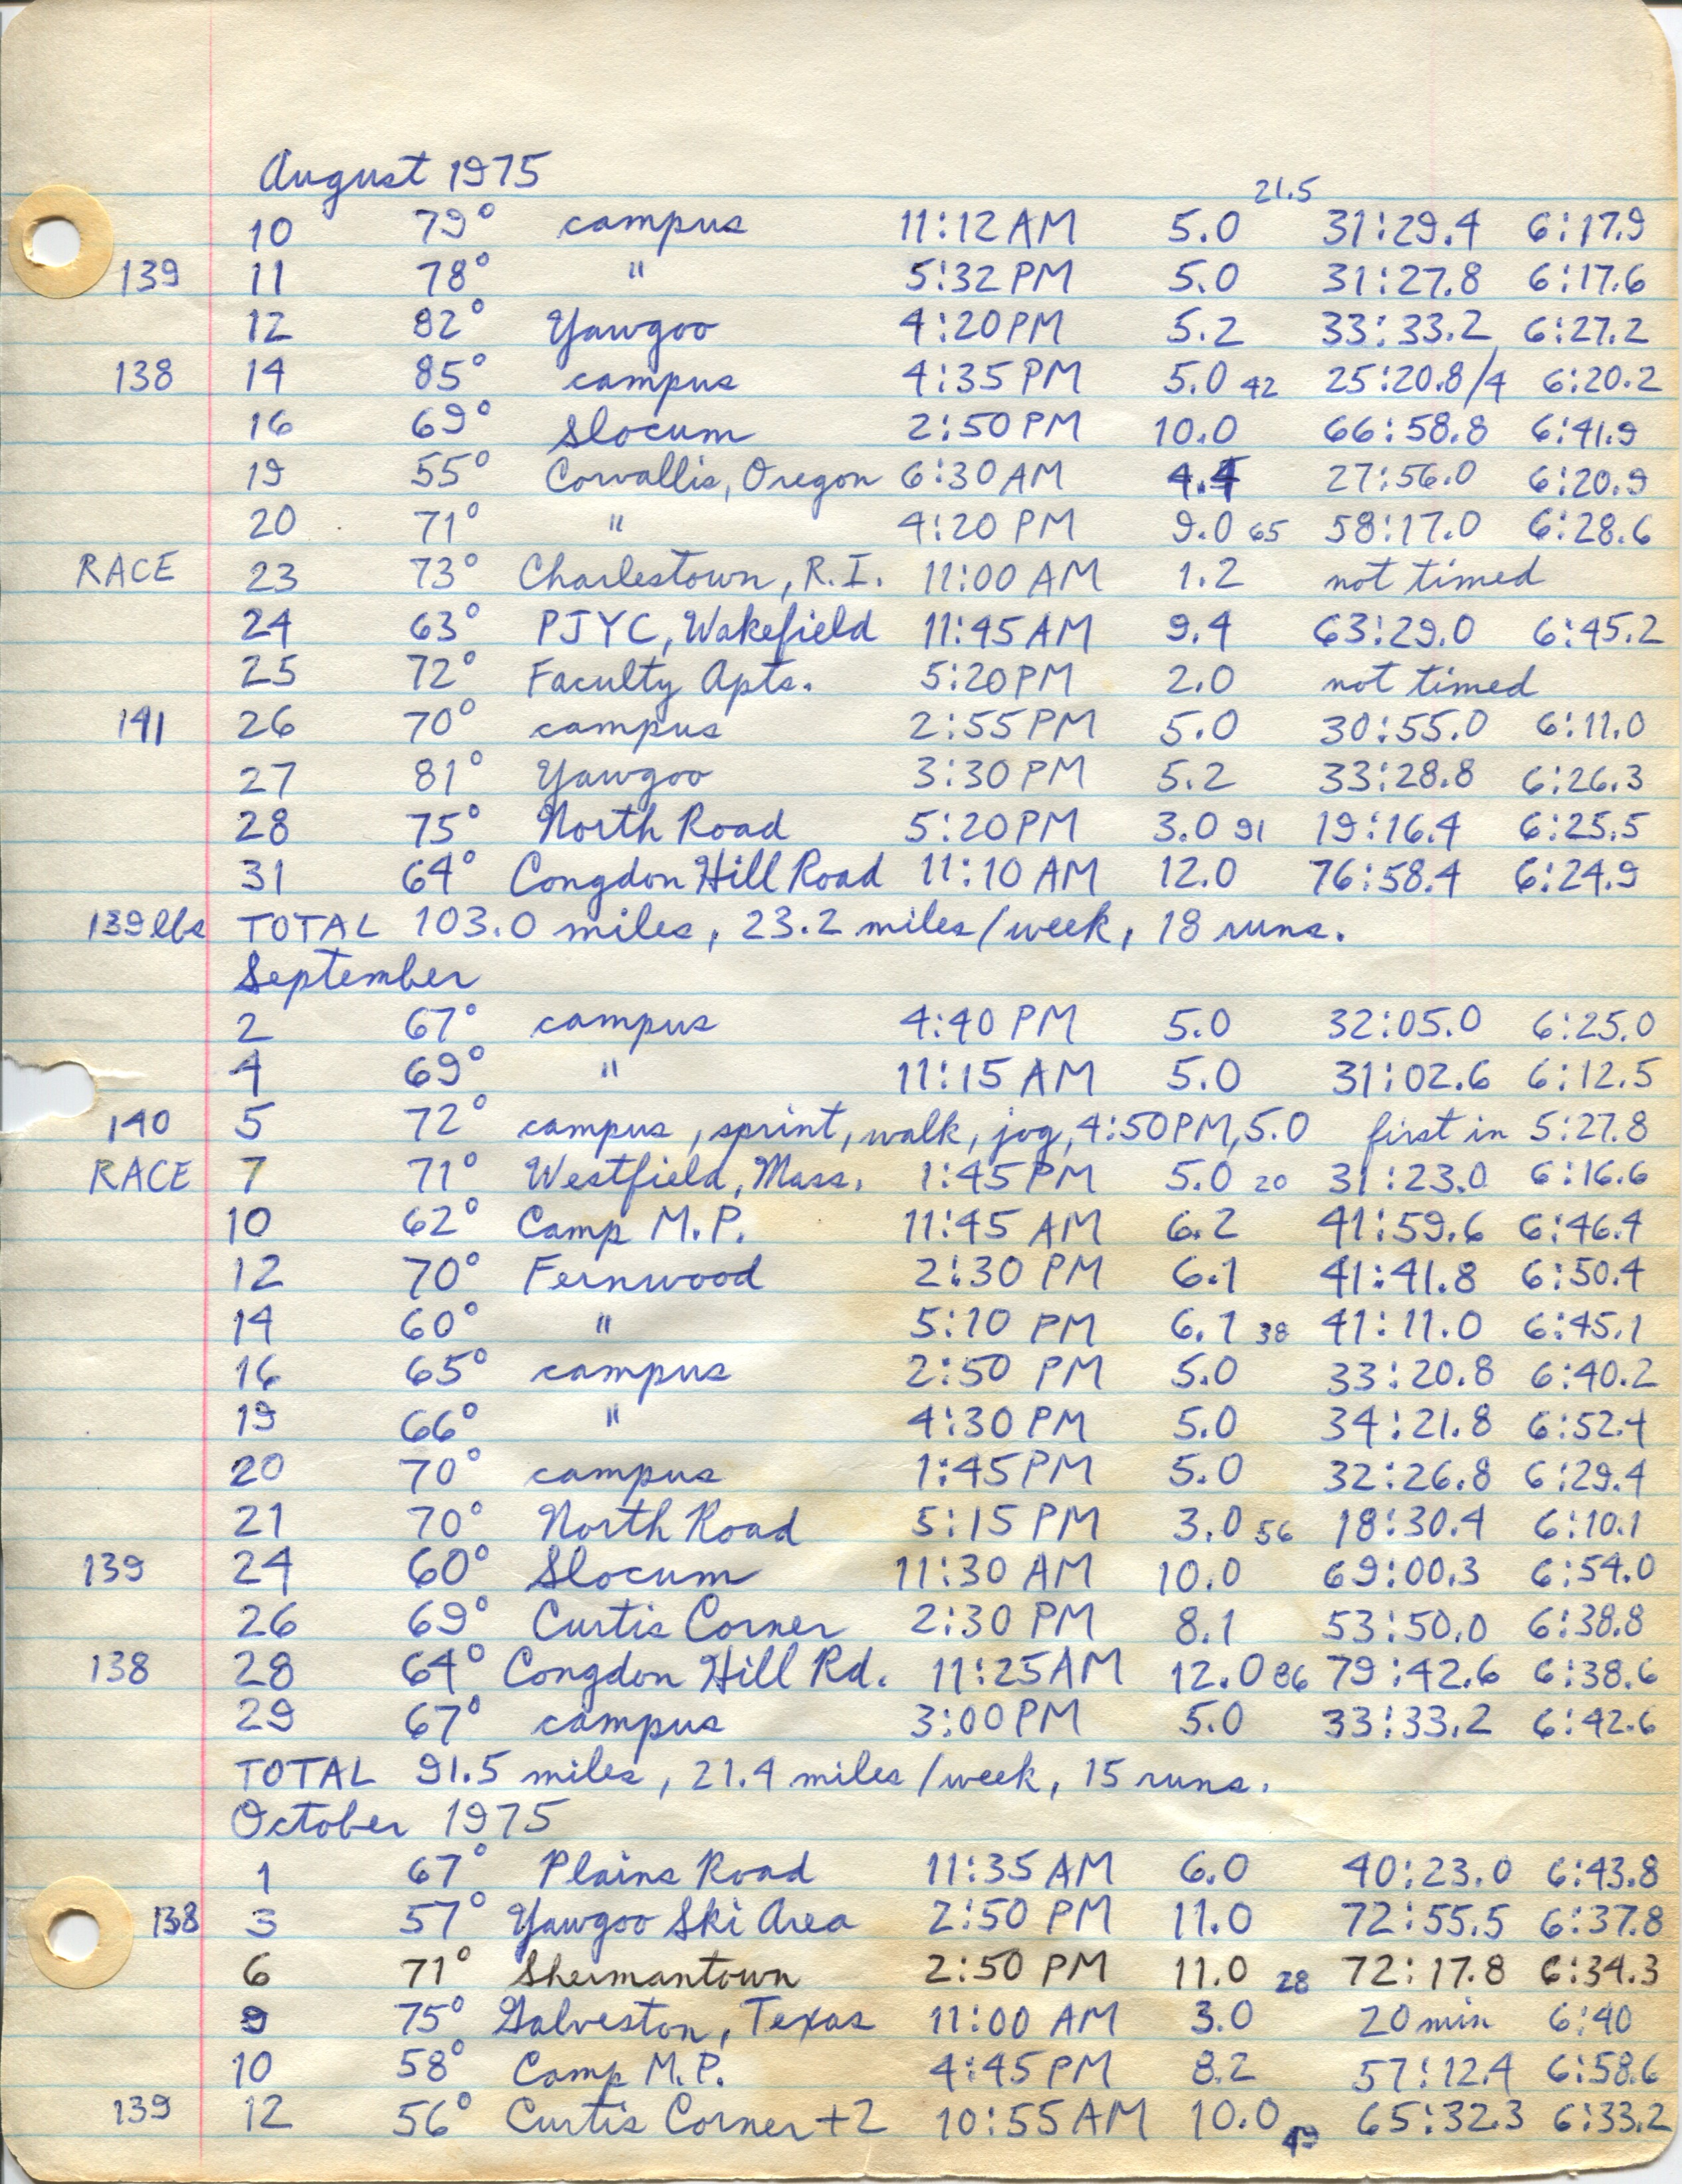 August 1975
21.5
10 79° campus 11:12 AM 5.0 31:29.4 6:17.9
139 11 78° " 5:32 PM 5.0 31:27.8 6:17.6
12 82° Yawgoo 4:20 PM 5.2 33:33.2 6:27.2
138 14 85° campus 4:35 PM 5.0 42 25:20.8/4 6:20.2
16 69° Slocum 2:50 PM 10.0 66:58.8 6:41.9
19 55° Corvallis, Oregon 6:30 AM 4.4 27:56.0 6:20.9
20 71° " 4:20 PM 9.0 65 58:17.0 6:28.6
RACE 23 73° Charlestown, R.I. 11:00 AM 1.2 not timed
24 63° PJYC, Wakefield 11:45 AM 9.4 63:29.0 6:45.2
25 72° Faculty Apts. 5:20 PM 2.0 not timed
141 26 70° campus 2:55 PM 5.0 30:55.0 6:11.0
27 81° Yawgoo 3:30 PM 5.2 33:28.8 6:26.3
28 75° North Road 5:20 PM 3.0 91 19:16.4 6:25.5
31 64° Congdon Hill Road 11:10 AM 12.0 76:58.4 6:24.9
139 lbs TOTAL 103.0 miles, 23.2 miles/week, 18 runs.
September
2 67° campus 4:40 PM 5.0 32:05.0 6:25.0
4 69° " 11:15 AM 5.0 31:02.6 6:12.5
140 5 72° campus, sprint, walk, jog, 4:50 PM, 5.0 first in 5:27.8
RACE 7 71° Westfield, Mass. 1:45 PM 5.0 20 31:23.0 6:16.6
10 62° Camp M.P. 11:45 AM 6.2 41:59.6 6:46.4
12 70° Fernwood 2:30 PM 6.1 41:41.8 6:50.4
14 60° " 5:10 PM 6.1 38 41:11.0 6:45.1
16 65° campus 2:50 PM 5.0 33:20.8 6:40.2
19 66° " 4:30 PM 5.0 34:21.8 6:52.4
20 70° campus 1:45 PM 5.0 32:26.8 6:29.4
21 70° North Road 5:15 PM 3.0 56 18:30.4 6:10.1
139 24 60° Slocum 11:30 AM 10.0 69:00.3 6:54.0
26 69° Curtis Corner 2:30 PM 8.1 53:50.0 6:38.8
138 28 64° Congdon Hill Rd. 11:25 AM 12.0 86 79:42.6 6:38.6
29 67° campus 3:00 PM 5.0 33:33.2 6:42.6
TOTAL 91.5 miles, 21.4 miles/week, 15 runs.
October 1975
1 67° Plains Road 11:35 AM 6.0 40:23.0 6:43.8
138 3 57° Yawgoo Ski Area 2:50 PM 11.0 72:55.5 6:37.8
6 71° Shermantown 2:50 PM 11.0 28 72:17.8 6:34.3
9 75° Galveston, Texas 11:00 AM 3.0 20 min 6:40
10 58° Camp M.P. 4:45 PM 8.2 57:12.4 6:58.6
139 12 56° Curtis Corner +2 10:55 AM 10.0 49 65:32.3 6:33.2